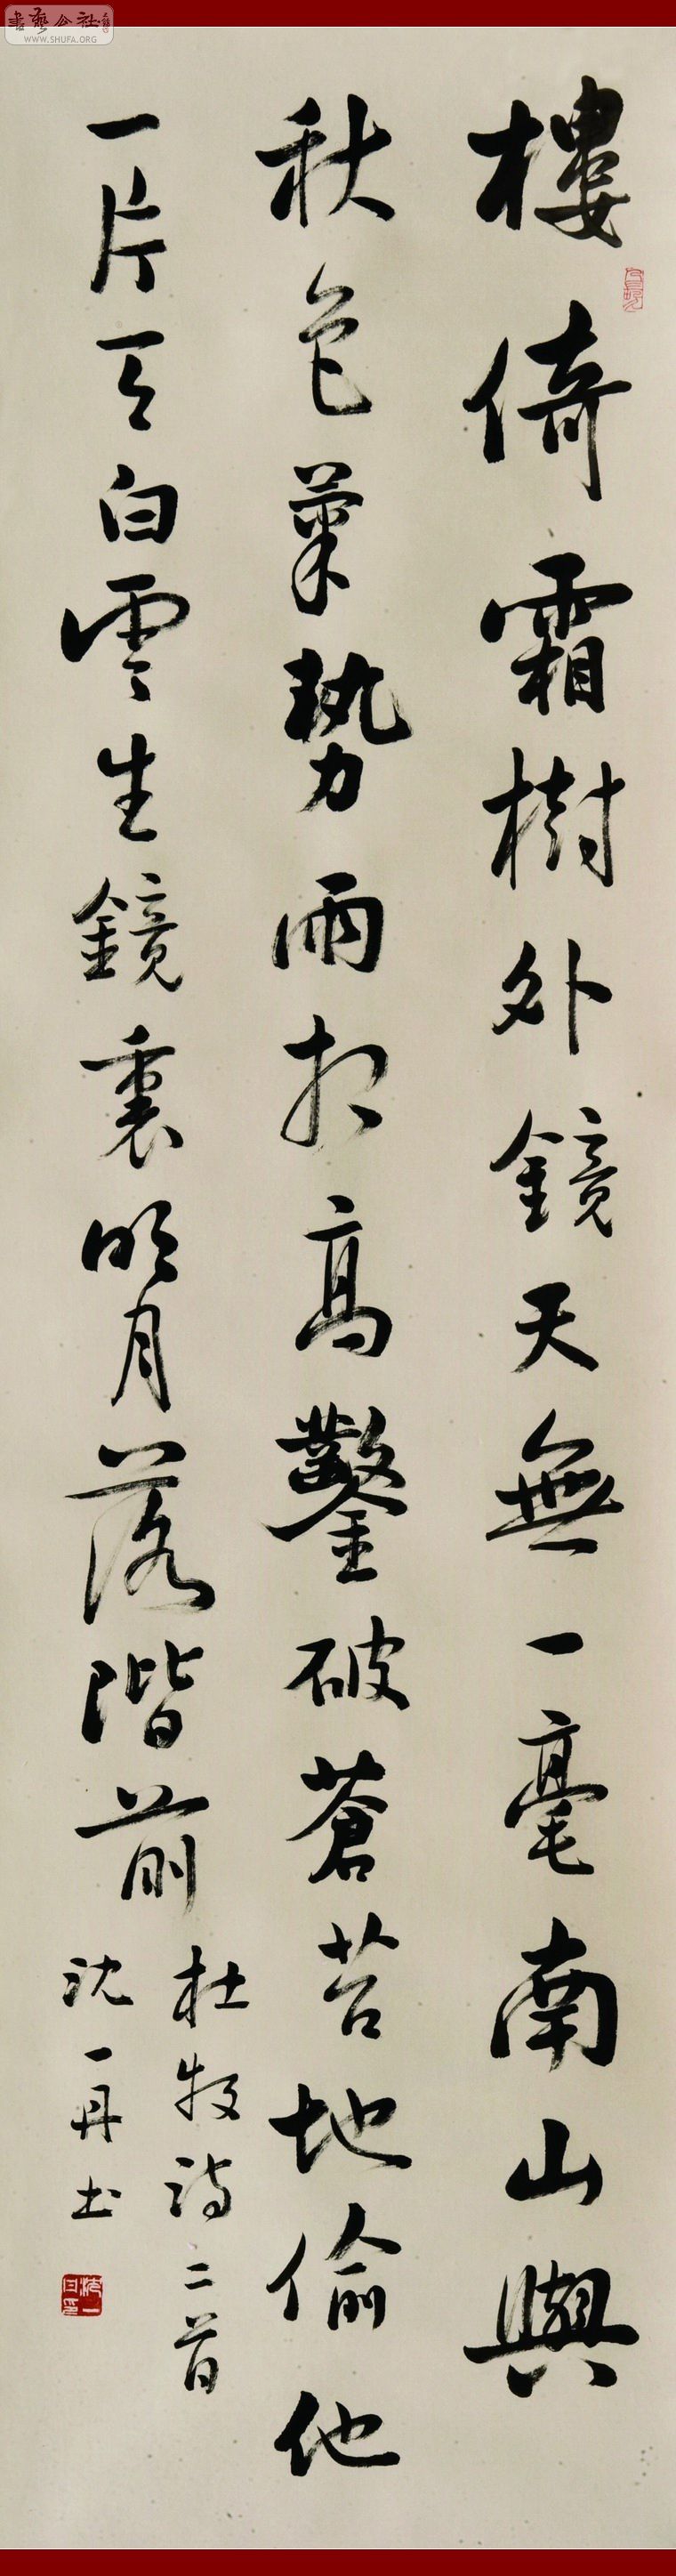 書藝公社
WWW.SHUFA.ORG
樓倚霜樹外鏡天無一毫南山與
秋色氣勢兩相高鑿破蒼苔地偷他
一片天白雲生鏡裏明月落階前
杜牧詩二首
沈一丹书
沈一丹印